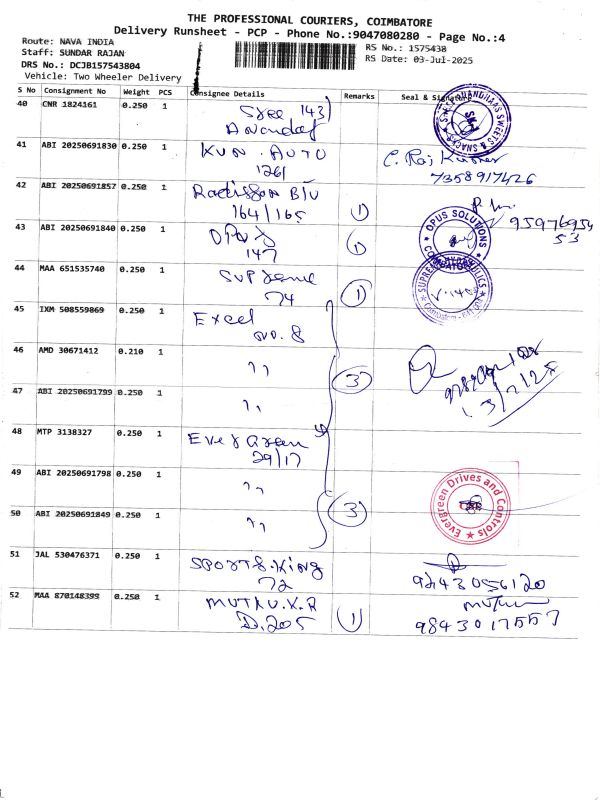 THE PROFESSIONAL COURIERS, COIMBATORE
Delivery Runsheet - PCP - Phone No.:9047080280 - Page No.:4
Route: NAVA INDIA
RS No.: 1575438
Staff: SUNDAR RAJAN
RS Date: 03-Jul-2025
DRS No.: DCJB157543804
Vehicle: Two Wheeler Delivery
S No Consignment No Weight PCS Consignee Details Remarks Seal & Signature
40 CNR 1824161 0.250 1 Sree 143/
Anandas
41 ABI 20250691830 0.250 1 KUN. AUTO C. Raj Kumar
126/ 7358917426
42 ABI 20250691857 0.250 1 Radisson B/U
164/165 1
43 ABI 20250691840 0.250 1 OPUS OPUS SOLUTIONS COIMBATORE
147 1
44 MAA 651535740 0.250 1 Supreme
74 1
45 IXM 508559869 0.250 1 Excel
NO. 8
46 AMD 30671412 0.210 1 ,, 3
47 ABI 20250691799 0.250 1 ,,
48 MTP 3138327 0.250 1 Evergreen
29/17
49 ABI 20250691798 0.250 1 ,, Evergreen Drives and Controls
50 ABI 20250691849 0.250 1 ,, 3
51 JAL 530476371 0.250 1 Sports.King
72 9243056120
52 MAA 870148399 0.250 1 MUTHU.K.R
D.205 1 9843017557